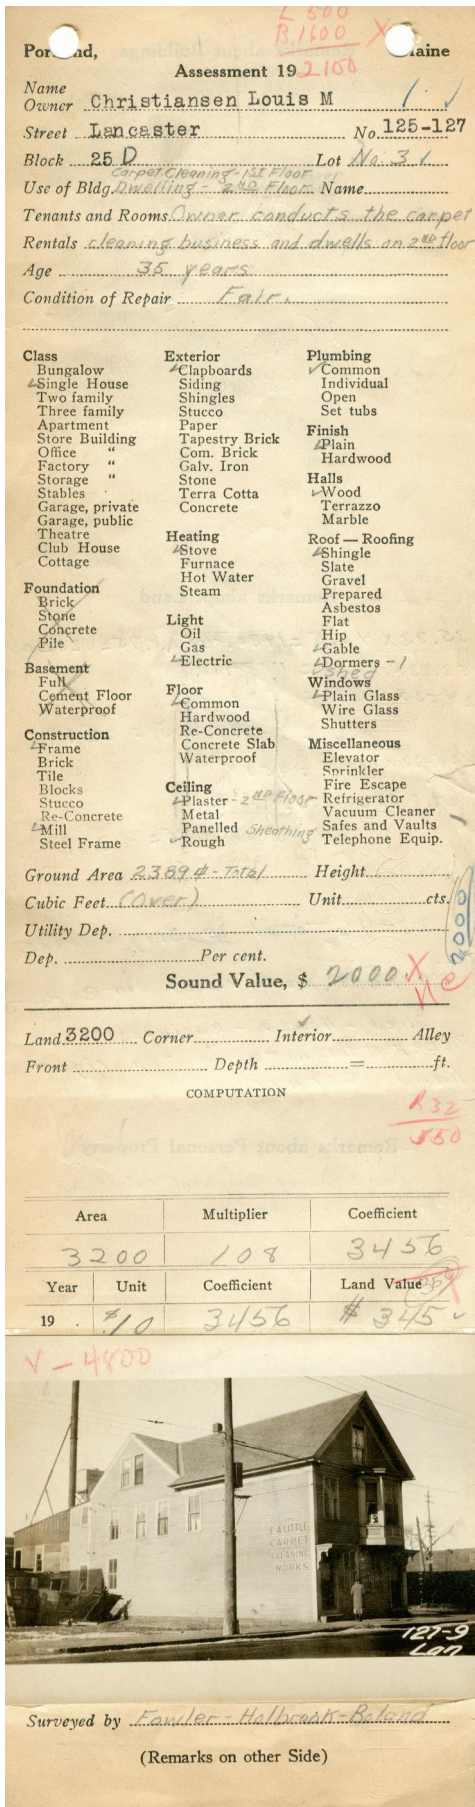 L 500
B.1600 X
Portland, Maine
Assessment 19 2100
Name
Owner Christiansen Louis M 1 ✓
Street Lancaster No. 125-127
Block 25 D Lot No. 3 ✓
Carpet Cleaning - 1st Floor
Use of Bldg. Dwelling - 2nd Floor Name
Tenants and Rooms Owner conducts the carpet
Rentals cleaning business and dwells on 2nd floor
Age 35 years
Condition of Repair Fair.
Class
Bungalow
✓ Single House
Two family
Three family
Apartment
Store Building
Office "
Factory "
Storage "
Stables
Garage, private
Garage, public
Theatre
Club House
Cottage
Foundation
Brick
Stone
Concrete
Pile
Basement
Full
Cement Floor
Waterproof
Construction
✓ Frame
Brick
Tile
Blocks
Stucco
Re-Concrete
✓ Mill
Steel Frame
Exterior
✓ Clapboards
Siding
Shingles
Stucco
Paper
Tapestry Brick
Com. Brick
Galv. Iron
Stone
Terra Cotta
Concrete
Heating
✓ Stove
Furnace
Hot Water
Steam
Light
Oil
Gas
✓ Electric
Floor
✓ Common
Hardwood
Re-Concrete
Concrete Slab
Waterproof
Ceiling
✓ Plaster - 2nd Floor
Metal
Panelled Sheathing
✓ Rough
Plumbing
✓ Common
Individual
Open
Set tubs
Finish
✓ Plain
Hardwood
Halls
✓ Wood
Terrazzo
Marble
Roof — Roofing
✓ Shingle
Slate
Gravel
Prepared
Asbestos
Flat
Hip
✓ Gable
✓ Dormers - 1
shed
Windows
✓ Plain Glass
Wire Glass
Shutters
Miscellaneous
Elevator
Sprinkler
Fire Escape
Refrigerator
Vacuum Cleaner
Safes and Vaults
Telephone Equip.
Ground Area 2389 - Total Height
Cubic Feet (Over) Unit cts.
2000
Utility Dep.
Dep. Per cent.
Sound Value, $ 2000. X
Land 3200 Corner Interior ✓ Alley
Front Depth = ft.
COMPUTATION
R32
550
Area Multiplier Coefficient
3200 108 3456
Year Unit Coefficient Land Value
19 . $10 3456 $ 345 ✓
V - 4800
THE
F A LITTLE
CARPET
CLEANING
WORKS
127-9
Lan
Surveyed by Fowler - Holbrook - Boland
(Remarks on other Side)